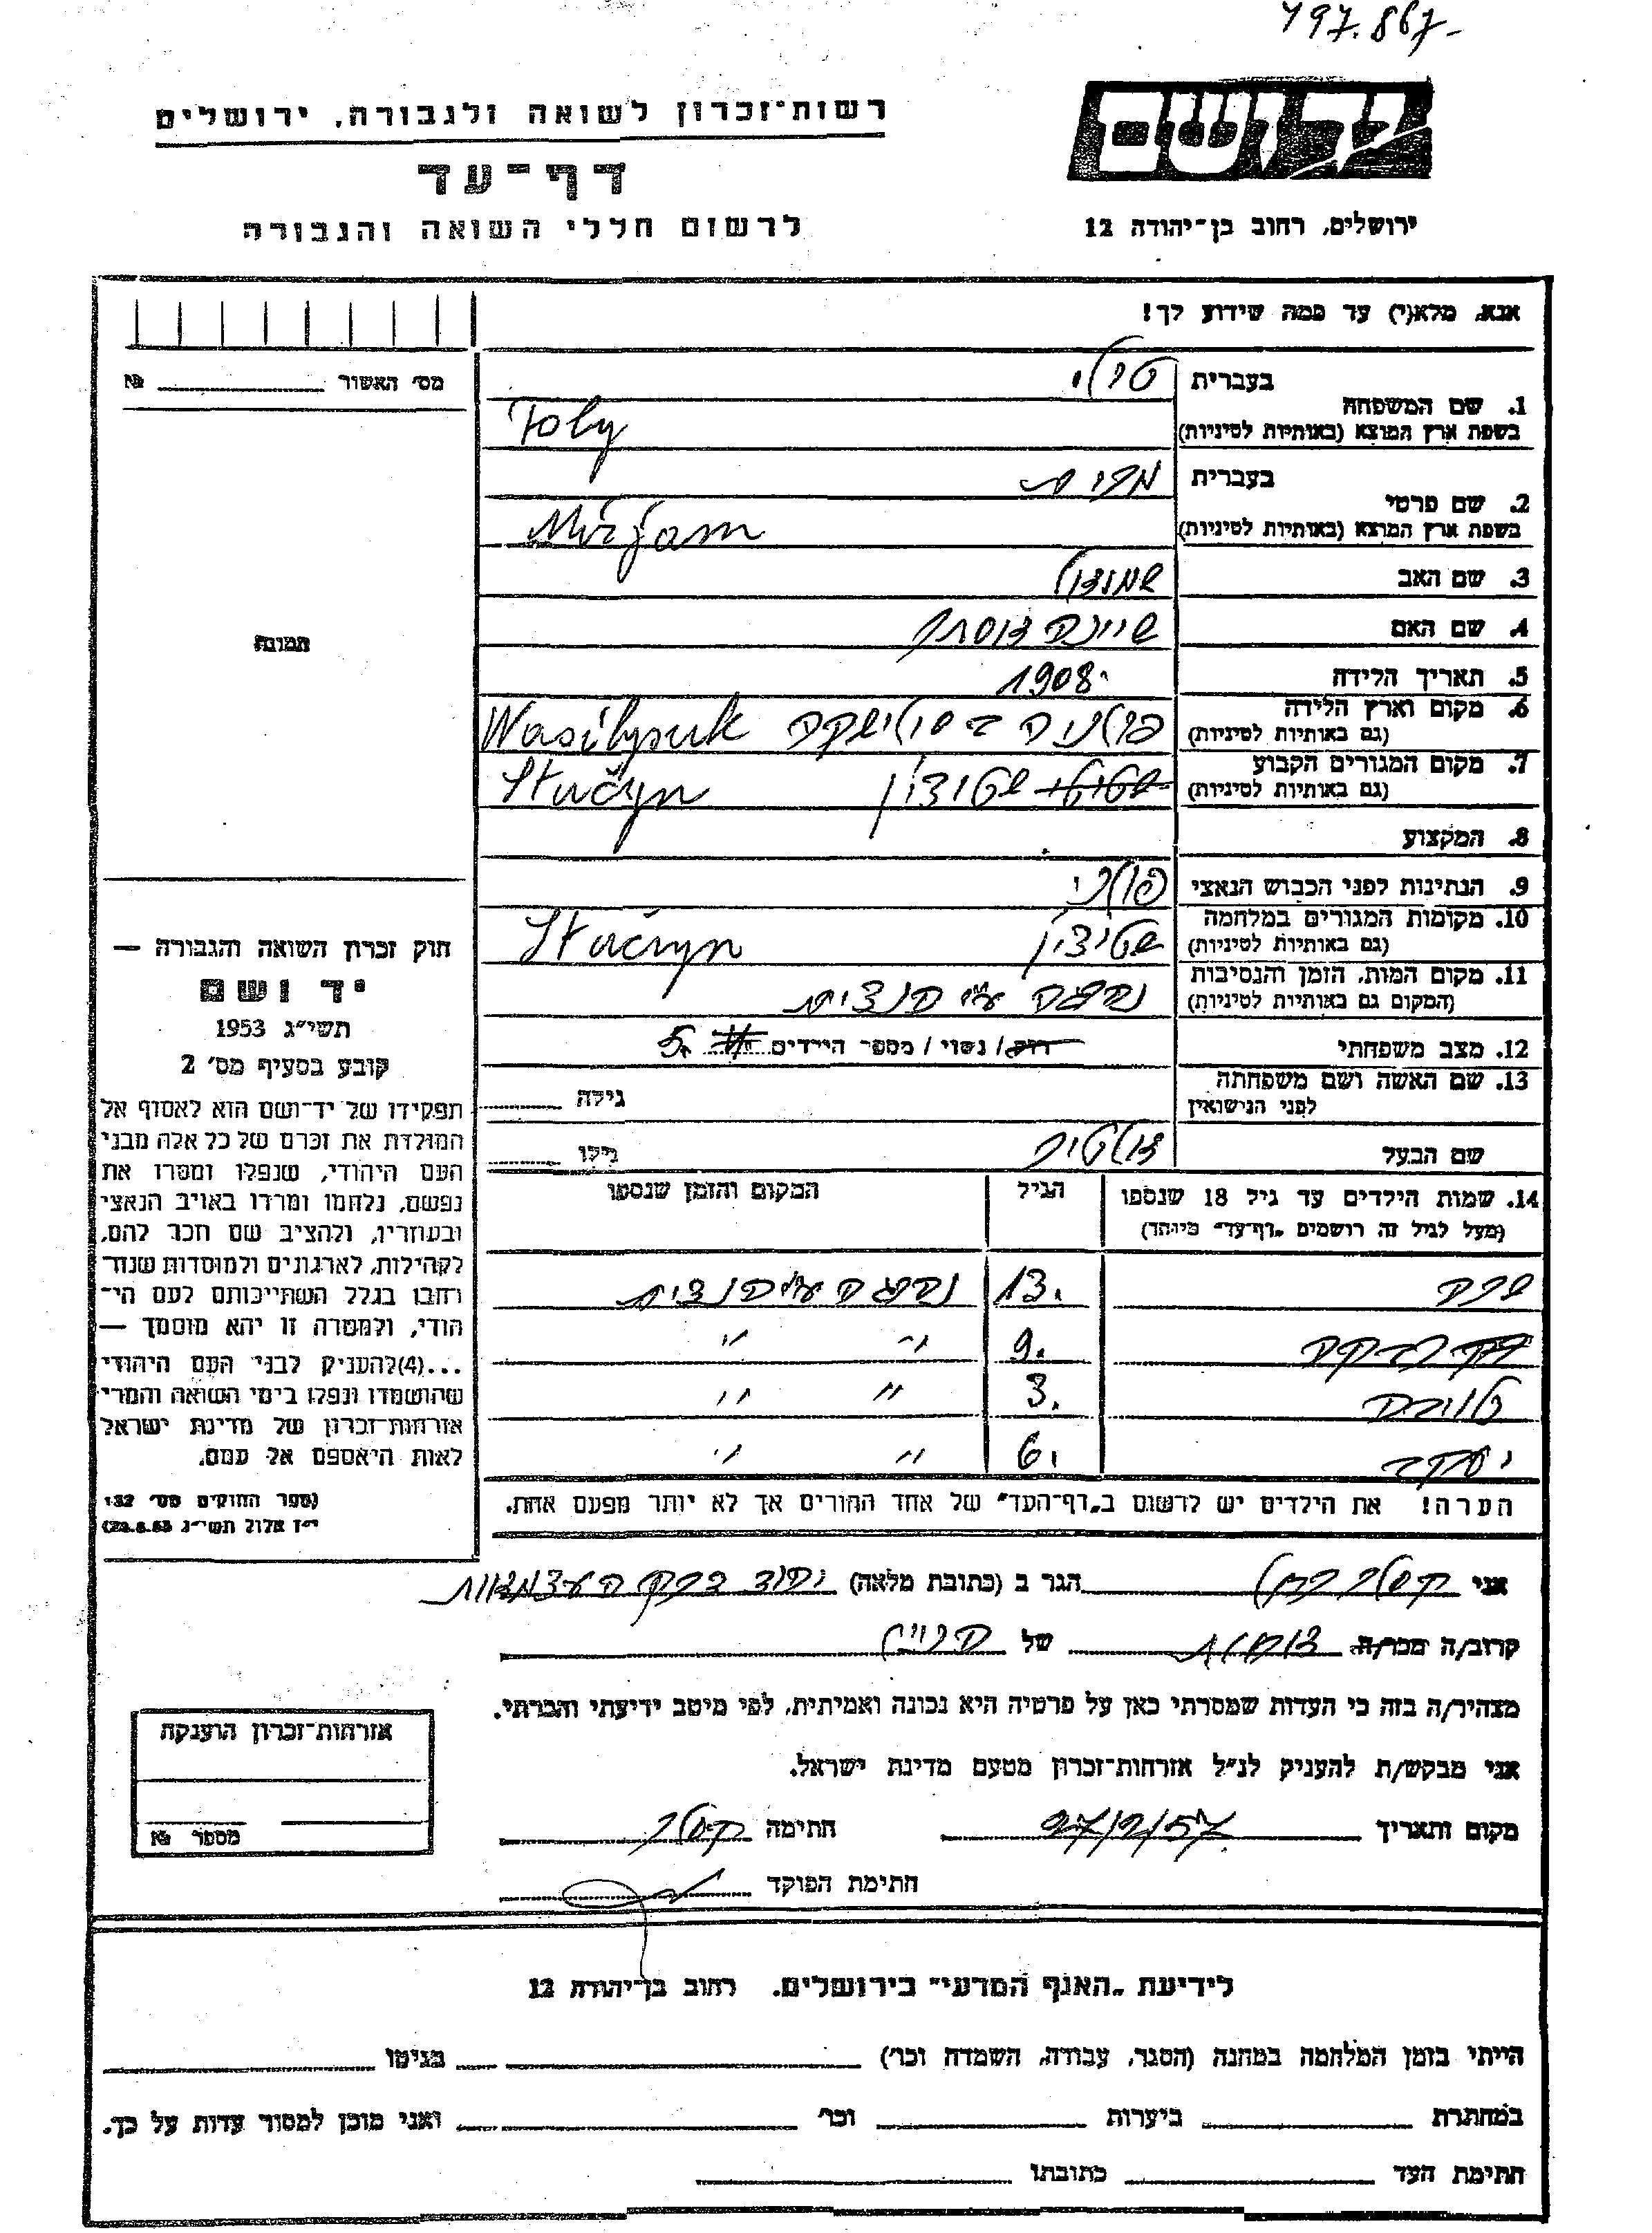 797.867-
רשות־זכרון לשואה ולגבורה, ירושלים
יד ושם
דף־עד
לרשום חללי השואה והגבורה
ירושלים, רחוב בן־יהודה 12
אנא, מלא(י) עד כמה שידוע לך!
מס׳ האשור № 
תמונה
חוק זכרון השואה והגבורה —
יד ושם
תשי״ג 1953
קובע בסעיף מס׳ 2
תפקידו של יד־ושם הוא לאסוף אל
המולדת את זכרם של כל אלה מבני
העם היהודי, שנפלו ומסרו את
נפשם, נלחמו ומרדו באויב הנאצי
ובעוזריו, ולהציב שם וזכר להם,
לקהילות, לארגונים ולמוסדות שנח־
רבו בגלל השתייכותם לעם הי־
הודי, ולמטרה זו יהא מוסמך —
...(4)להעניק לבני העם היהודי
שהושמדו ונפלו בימי השואה והמרי
אזרחות־זכרון של מדינת ישראל
לאות היאספם אל עמם.
(ספר החוקים מס׳ 132
י״ז אלול תשי״ג 28.8.53)
1. שם המשפחה
בעברית טולי
בשפת ארץ המוצא (באותיות לטיניות) Toly
2. שם פרטי
בעברית מרים
בשפת ארץ המוצא (באותיות לטיניות) Mirjam
3. שם האב שמואל
4. שם האם שיינה
5. תאריך הלידה 1908
6. מקום וארץ הלידה
(גם באותיות לטיניות) פולניה וסילישקה Wasilyszuk
7. מקום המגורים הקבוע
(גם באותיות לטיניות) שטוצין Stučyn
8. המקצוע
9. הנתינות לפני הכבוש הנאצי פולני
10. מקומות המגורים במלחמה
(גם באותיות לטיניות) שטיצין Stučyn
11. מקום המות, הזמן והנסיבות
(המקום גם באותיות לטיניות) נהרגה ע״י הנצים
12. מצב משפחתי רוק/ נשוי / מספר הילדים 5
13. שם האשה ושם משפחתה
לפני הנישואין גילה
שם הבעל גילו
14. שמות הילדים עד גיל 18 שנספו הגיל המקום והזמן שנספו
(מעל לגיל זה רושמים „דף־עד״ מיוחד)
שרה 13. נהרגה ע״י הנצים
רבקה 9. ״ ״
3. ״ ״
יעקב 6. ״ ״
הערה! את הילדים יש לרשום ב„דף־העד״ של אחד ההורים אך לא יותר מפעם אחת.
אני קסלר רחל הגר ב (כתובת מלאה) רח׳ העצמאות
קרוב/ה מכר/ה אחות של
מצהיר/ה בזה כי העדות שמסרתי כאן על פרטיה היא נכונה ואמיתית, לפי מיטב ידיעתי והכרתי.
אני מבקש/ת להעניק לנ״ל אזרחות־זכרון מטעם מדינת ישראל.
מקום ותאריך 27/2/57 חתימה קסלר
חתימת הפוקד
אזרחות־זכרון הוענקה
מספר №
לידיעת „האגף המדעי״ בירושלים. רחוב בן־יהודה 12
הייתי בזמן המלחמה במחנה (הסגר, עבודה, השמדה וכר׳) בגיטו
במחתרת ביערות וכר׳ ואני מוכן למסור עדות על כך.
חתימת העד כתובתו